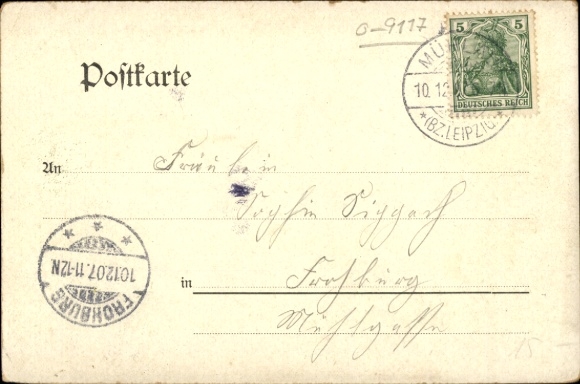 0-9117
5 5
DEUTSCHES REICH
MÜ
10.12
*(BZ.LEIPZIG)*
Postkarte
An Fräulein
Sophie
in Frohburg
Mühlgasse
FROHBURG
10.12.07.11-12N
15